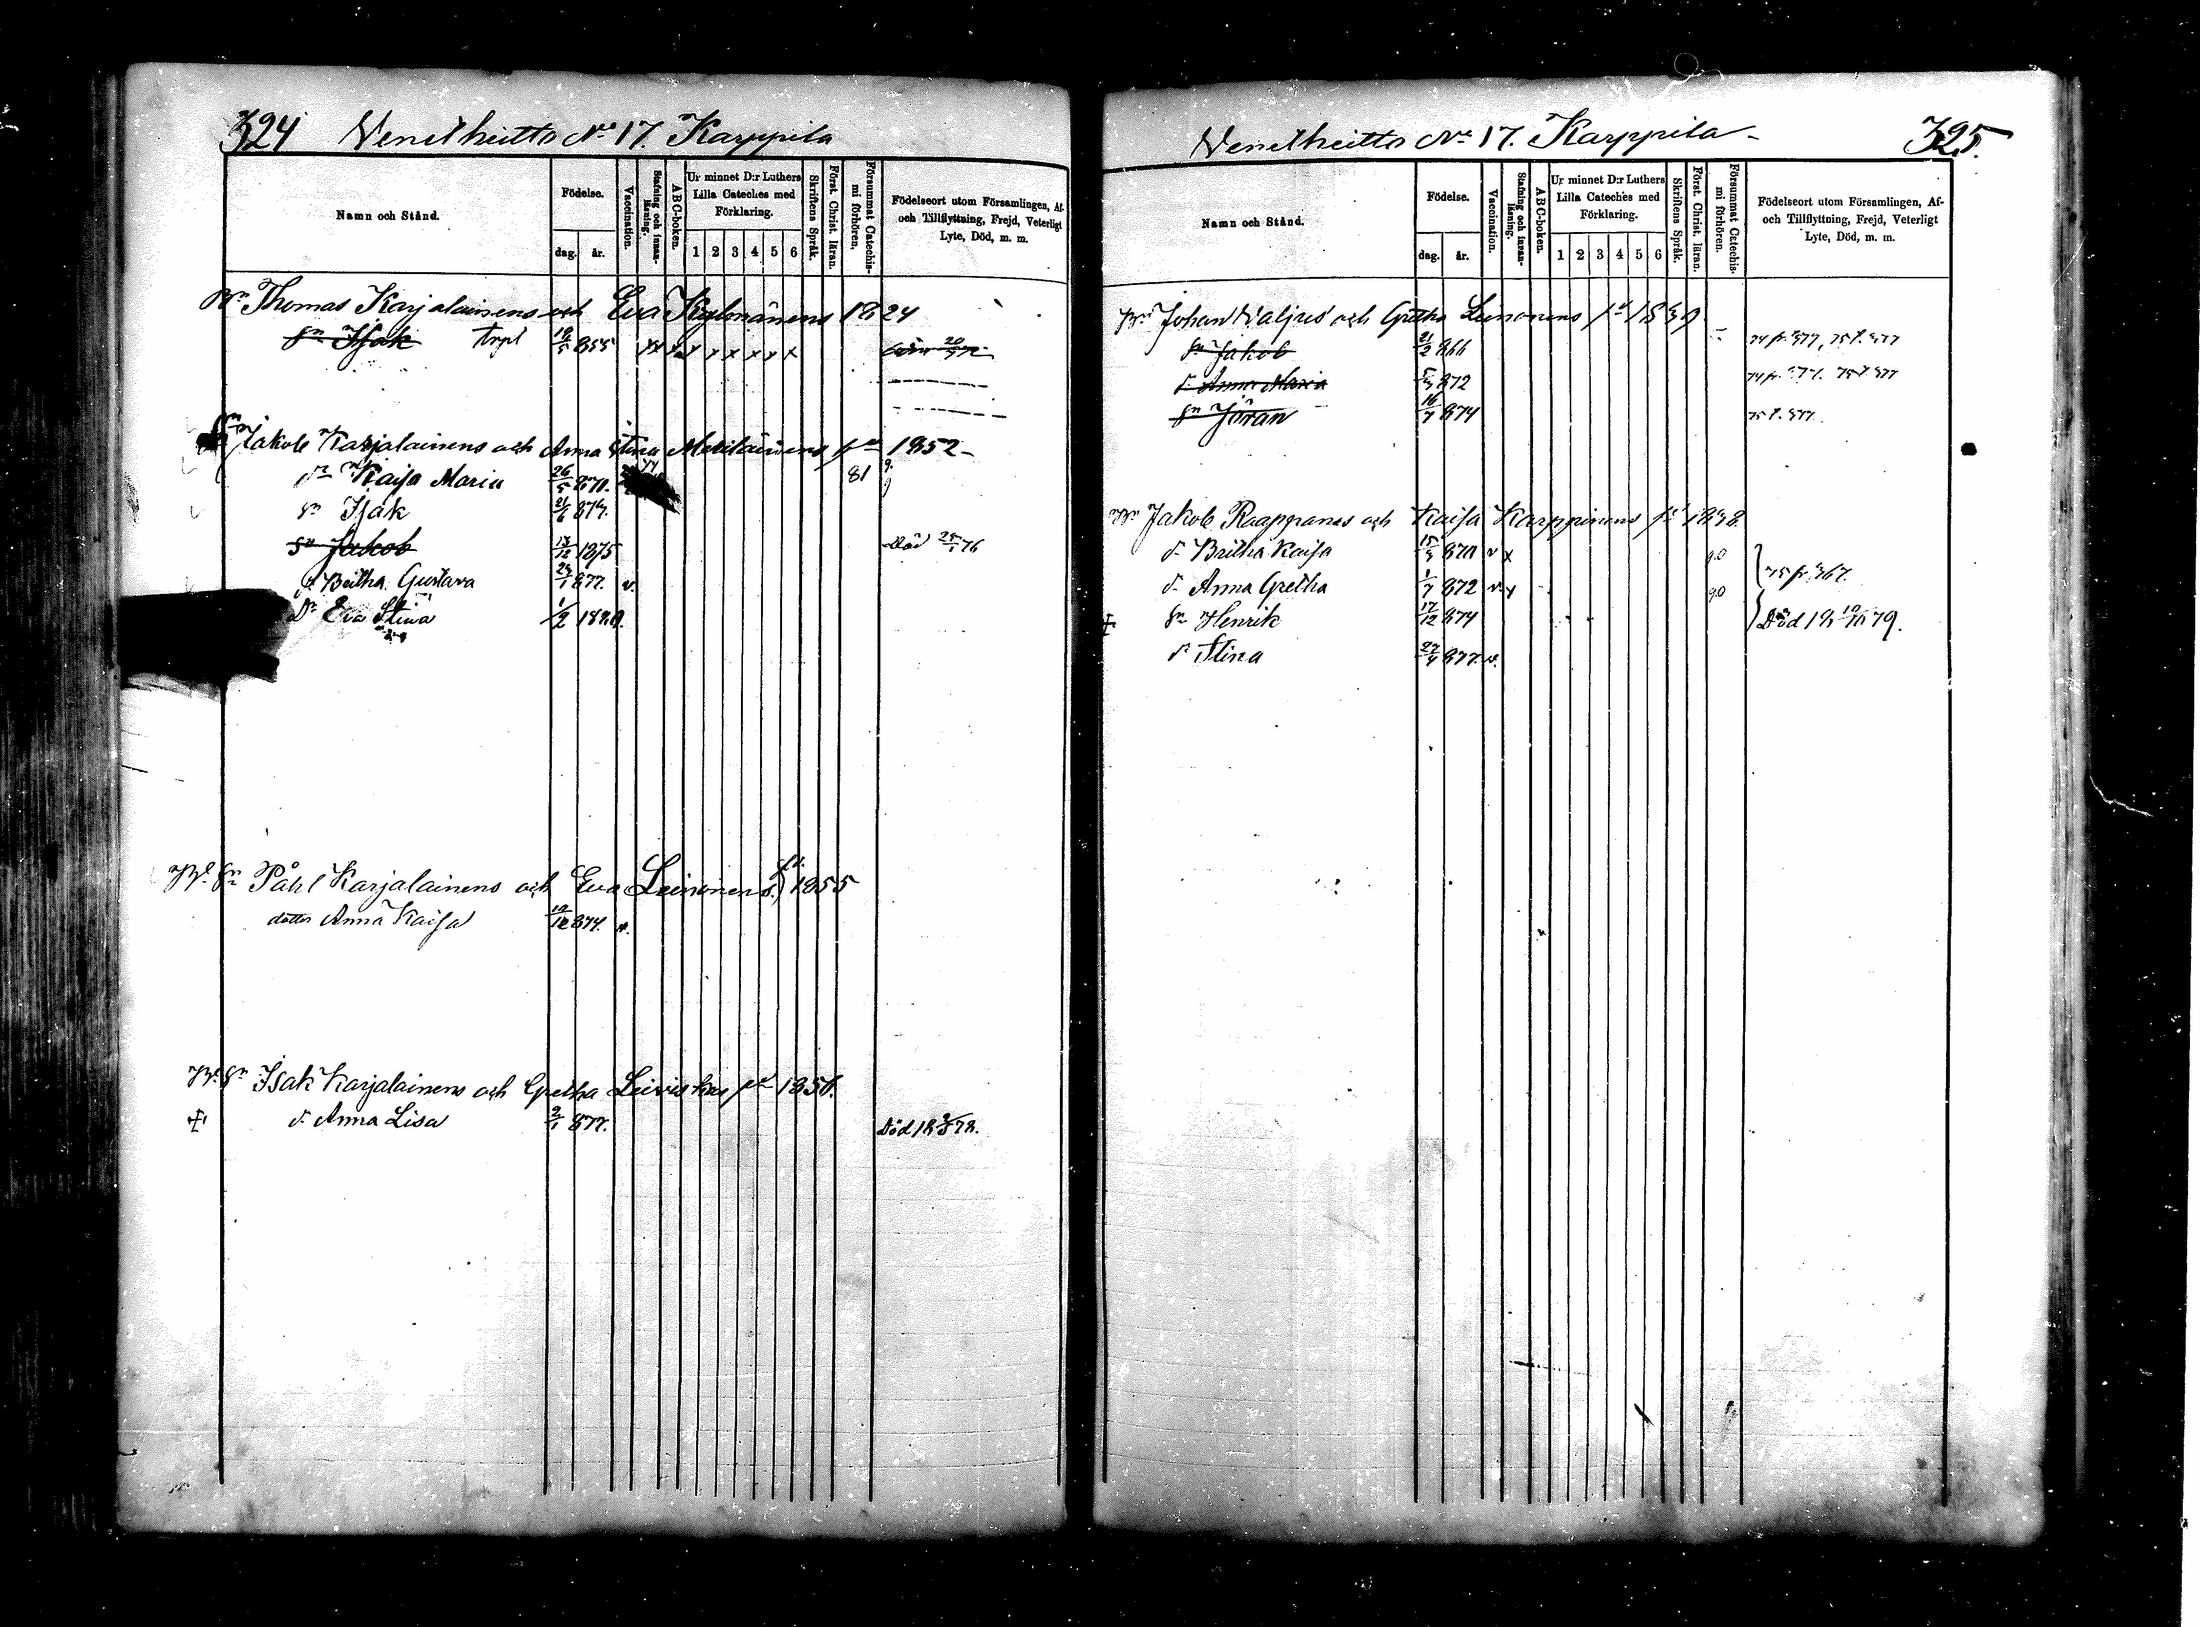 324 Venetheitto No 17. Karppila
Namn och Stånd.
Födelse.
dag. år.
Vaccination.
Stafning och innanläsning.
ABC-boken.
Ur minnet D:r Luthers Lilla Cateches med Förklaring.
1 2 3 4 5 6
Skriftens Språk.
Först. Christ. läran.
Försummat Catechismi förhören.
Födelseort utom Församlingen, Af- och Tillflyttning, Frejd, Veterligt Lyte, Död, m. m.
Thomas Karjalainens och Eva Kylmänens 1824
Sn Isak 855 x x x x x x
Jakob Karjalainens och Anna Stina Meriläinens 1852
Kaisa Maria 26/5 870. 81
Sn Isak 21/6 873.
Sn Jakob 13/12 1875 Död 25/1 76
d. Britha Gustava 877. v.
Dr Eva Stina 1/2 1880.
Sn Påhl Karjalainens och Eva Leinonens 1855
dotter Anna Kaisa 874. v.
Sn Isak Karjalainens och Gretha Leiviskas 1856.
d. Anna Lisa 2/1 877. Död 18 78.
Venetheitto No 17. Karppila 325.
Namn och Stånd.
Födelse.
dag. år.
Vaccination.
Stafning och innanläsning.
ABC-boken.
Ur minnet D:r Luthers Lilla Cateches med Förklaring.
1 2 3 4 5 6
Skriftens Språk.
Först. Christ. läran.
Försummat Catechismi förhören.
Födelseort utom Församlingen, Af- och Tillflyttning, Frejd, Veterligt Lyte, Död, m. m.
Johan Valjus och Gretha Leinonens 1839
Sn Jakob 21/2 866
d. Anna Maria 872
Sn Jöran 16/7 874
Jakob Raappanas och Kaisa Karppinens 1838
d. Britha Kaisa 870 v x 90
d. Anna Gretha 1/7 872 v x 90
Sn Henrik 17/12 874 Död 18 10/10 79.
d. Stina 877. v.